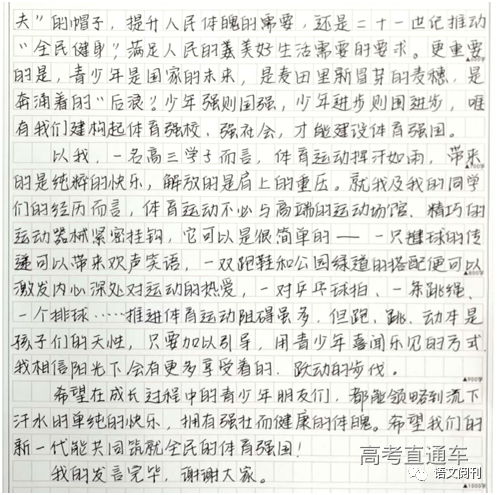 夫”的帽子，提升人民体魄的需要，还是二十一世纪推动
“全民健身”，满足人民的美好生活需要的要求。更重要
的是，青少年是国家的未来，是麦田里新冒芽的麦穗，是
奔涌着的“后浪”，少年强则国强，少年进步则国进步，唯
有我们建构起体育强校、强社会，才能建设体育强国。
以我，一名高三学子而言，体育运动挥汗如雨，带来
的是纯粹的快乐，解放的是肩上的重压。就我及我的同学
们的经历而言，体育运动不必与高端的运动场馆、精巧的
运动器械紧密挂钩，它可以是很简单的——一只毽球的传
递可以带来欢声笑语，一双跑鞋和公园绿道的搭配便可以
激发内心深处对运动的热爱，一对乒乓球拍、一条跳绳、
一个排球……推进体育运动阻碍虽多，但跑、跳、动本是
孩子们的天性，只要加以引导，用青少年喜闻乐见的方式，
我相信阳光下会有更多享受着的、跃动的步伐。
希望在成长过程中的青少年朋友们，都能领略到流下
汗水的单纯的快乐，拥有强壮而健康的体魄。希望我们的
新一代能共同筑就全民的体育强国！
我的发言完毕，谢谢大家。
高考直通车
语文阅刊
▲900字
▲1000字